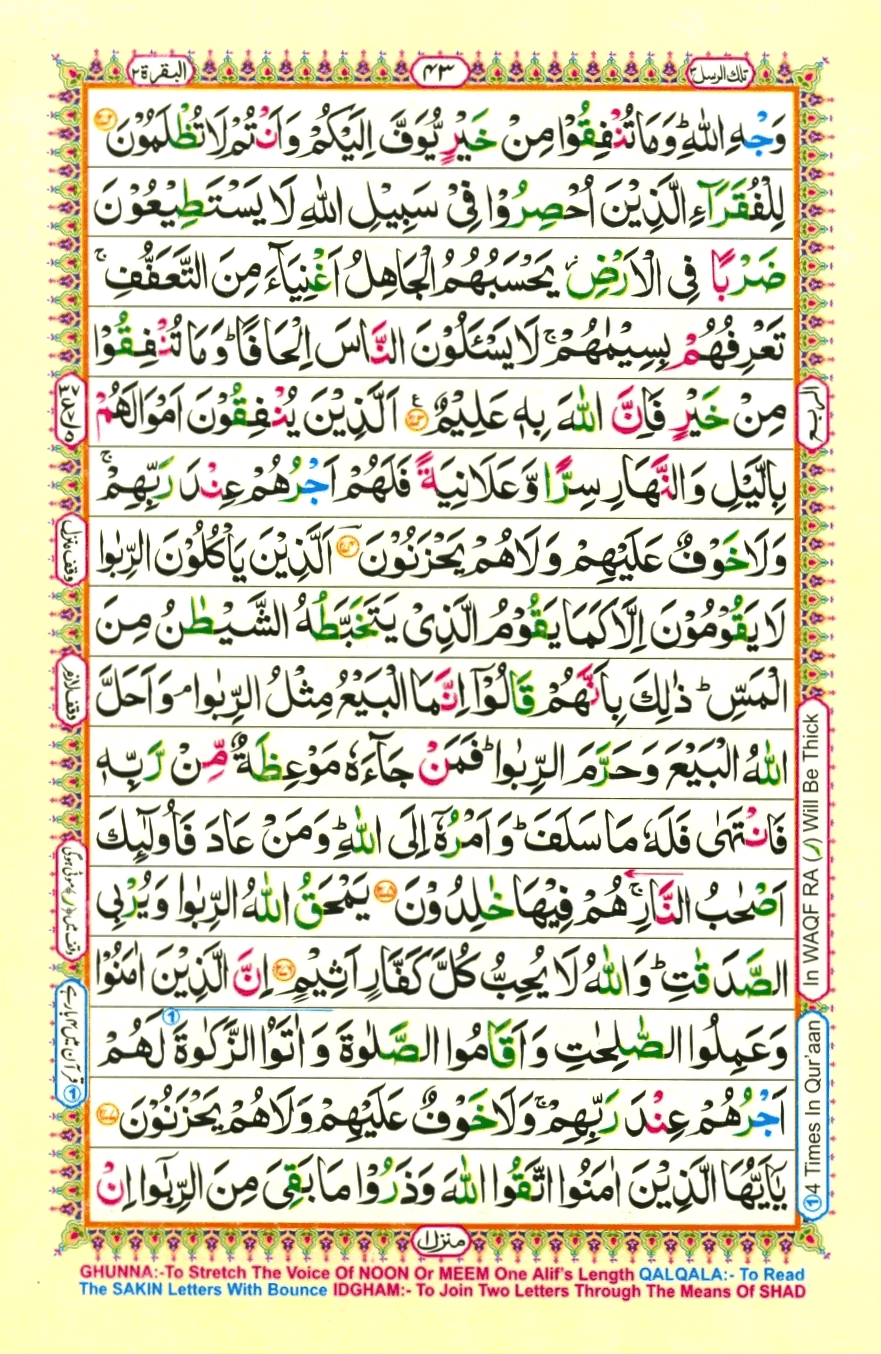 تلك الرسل ٣
٤٣
البقرة ٢
وَجْهِ اللّٰهِ ؕ وَمَا تُنْفِقُوْا مِنْ خَيْرٍ يُّوَفَّ اِلَيْكُمْ وَاَنْتُمْ لَا تُظْلَمُوْنَ ﴿۲۷۲﴾
لِلْفُقَرَآءِ الَّذِيْنَ اُحْصِرُوْا فِيْ سَبِيْلِ اللّٰهِ لَا يَسْتَطِيْعُوْنَ
ضَرْبًا فِى الْاَرْضِ ۫ يَحْسَبُهُمُ الْجَاهِلُ اَغْنِيَآءَ مِنَ التَّعَفُّفِ ۚ
تَعْرِفُهُمْ بِسِيْمٰهُمْ ۚ لَا يَسْـَٔلُوْنَ النَّاسَ اِلْحَافًا ؕ وَمَا تُنْفِقُوْا
مِنْ خَيْرٍ فَاِنَّ اللّٰهَ بِهٖ عَلِيْمٌ ﴿۲۷۳﴾ اَلَّذِيْنَ يُنْفِقُوْنَ اَمْوَالَهُمْ
بِالَّيْلِ وَالنَّهَارِ سِرًّا وَّعَلَانِيَةً فَلَهُمْ اَجْرُهُمْ عِنْدَ رَبِّهِمْ ۚ
وَلَا خَوْفٌ عَلَيْهِمْ وَلَا هُمْ يَحْزَنُوْنَ ﴿۲۷۴﴾ اَلَّذِيْنَ يَاْكُلُوْنَ الرِّبٰوا
لَا يَقُوْمُوْنَ اِلَّا كَمَا يَقُوْمُ الَّذِيْ يَتَخَبَّطُهُ الشَّيْطٰنُ مِنَ
الْمَسِّ ؕ ذٰلِكَ بِاَنَّهُمْ قَالُوْٓا اِنَّمَا الْبَيْعُ مِثْلُ الرِّبٰوا ۘ وَاَحَلَّ
اللّٰهُ الْبَيْعَ وَحَرَّمَ الرِّبٰوا ؕ فَمَنْ جَآءَهٗ مَوْعِظَةٌ مِّنْ رَّبِّهٖ
فَانْتَهٰى فَلَهٗ مَا سَلَفَ ؕ وَاَمْرُهٗٓ اِلَى اللّٰهِ ؕ وَمَنْ عَادَ فَاُولٰٓئِكَ
اَصْحٰبُ النَّارِ ۚ هُمْ فِيْهَا خٰلِدُوْنَ ﴿۲۷۵﴾ يَمْحَقُ اللّٰهُ الرِّبٰوا وَيُرْبِى
الصَّدَقٰتِ ؕ وَاللّٰهُ لَا يُحِبُّ كُلَّ كَفَّارٍ اَثِيْمٍ ﴿۲۷۶﴾ اِنَّ الَّذِيْنَ اٰمَنُوْا
وَعَمِلُوا الصّٰلِحٰتِ وَاَقَامُوا الصَّلٰوةَ وَاٰتَوُا الزَّكٰوةَ لَهُمْ
اَجْرُهُمْ عِنْدَ رَبِّهِمْ ۚ وَلَا خَوْفٌ عَلَيْهِمْ وَلَا هُمْ يَحْزَنُوْنَ ﴿۲۷۷﴾
يٰٓاَيُّهَا الَّذِيْنَ اٰمَنُوا اتَّقُوا اللّٰهَ وَذَرُوْا مَا بَقِيَ مِنَ الرِّبٰٓوا اِنْ
الربع
In WAQF RA (ر) Will Be Thick
① 4 Times In Qur'aan
وقف منزل
وقف لازم
منزل ١
GHUNNA:-To Stretch The Voice Of NOON Or MEEM One Alif's Length QALQALA:- To Read
The SAKIN Letters With Bounce IDGHAM:- To Join Two Letters Through The Means Of SHAD